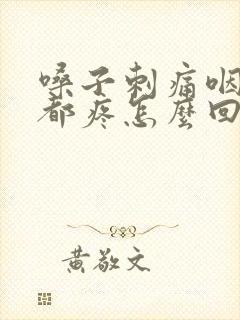 嗓子刺痛咽
都疼怎麼回
黃敬文